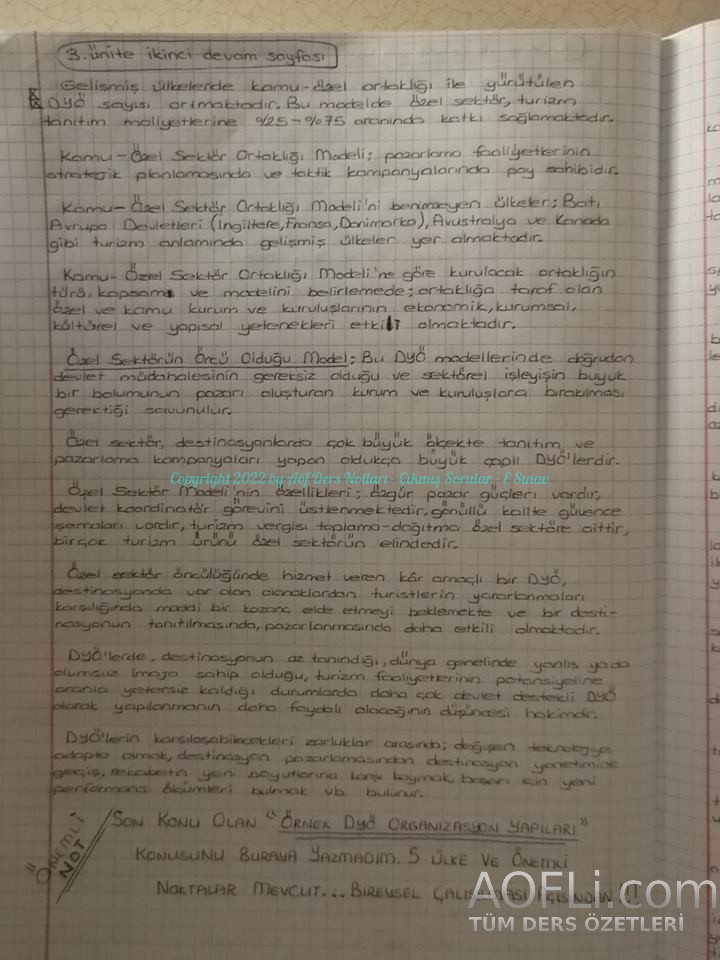 3. ünite ikinci devam sayfası
Gelişmiş ülkelerde kamu-özel ortaklığı ile yürütülen
DYÖ sayısı artmaktadır. Bu modelde özel sektör, turizm
tanıtım maliyetlerine %25-%75 oranında katkı sağlamaktadır.
Kamu-Özel Sektör Ortaklığı Modeli; pazarlama faaliyetlerinin
stratejik planlamasında ve taktik kampanyalarında pay sahibidir.
Kamu-Özel Sektör Ortaklığı Modeli'ni benimseyen ülkeler; Batı
Avrupa Devletleri (İngiltere, Fransa, Danimarka), Avustralya ve Kanada
gibi turizm anlamında gelişmiş ülkeler yer almaktadır.
Kamu-Özel Sektör Ortaklığı Modeli'ne göre kurulacak ortaklığın
türü, kapsamı ve modelini belirlemede; ortaklığa taraf olan
özel ve kamu kurum ve kuruluşlarının ekonomik, kurumsal,
kültürel ve yapısal yetenekleri etkili olmaktadır.
Özel Sektörün Öncü Olduğu Model; Bu DYÖ modellerinde doğrudan
devlet müdahalesinin gereksiz olduğu ve sektörel işleyişin büyük
bir bölümünün pazarı oluşturan kurum ve kuruluşlara bırakılması
gerektiği savunulur.
Özel sektör, destinasyonlarda çok büyük ölçekte tanıtım ve
pazarlama kampanyaları yapan oldukça büyük çaplı DYÖ'lerdir.
Copyright 2022 by Aöf Ders Notları - Çıkmış Sorular - E Sınav
Özel Sektör Modeli'nin özellikleri; özgür pazar güçleri vardır,
devlet koordinatör görevini üstlenmektedir, gönüllü kalite güvence
şemaları vardır, turizm vergisi toplama-dağıtma özel sektöre aittir,
birçok turizm ürünü özel sektörün elindedir.
Özel sektör öncülüğünde hizmet veren kâr amaçlı bir DYÖ,
destinasyonda var olan olanaklardan turistlerin yararlanmaları
karşılığında maddi bir kazanç elde etmeyi beklemekte ve bir desti-
nasyonun tanıtılmasında, pazarlanmasında daha etkili olmaktadır.
DYÖ'lerde, destinasyonun az tanındığı, dünya genelinde yanlış ya da
olumsuz imaja sahip olduğu, turizm faaliyetlerinin potansiyeline
oranla yetersiz kaldığı durumlarda daha çok devlet destekli DYÖ
olarak yapılanmanın daha faydalı olacağının düşüncesi hakimdir.
DYÖ'lerin karşılaşabilecekleri zorluklar arasında; değişen teknolojiye
adapte olmak, destinasyon pazarlamasından destinasyon yönetimine
geçiş, rekabetin yeni boyutlarına karşı koymak, başarı için yeni
performans ölçümleri bulmak vb. bulunur.
"ÖNEMLİ NOT
SON KONU OLAN "ÖRNEK DYÖ ORGANİZASYON YAPILARI"
KONUSUNU BURAYA YAZMADIM. 5 ÜLKE VE ÖNEMLİ
NOKTALAR MEVCUT... BİREYSEL ÇALIŞILMASI AÇISINDAN!!!
AOFLi.com
TÜM DERS ÖZETLERİ